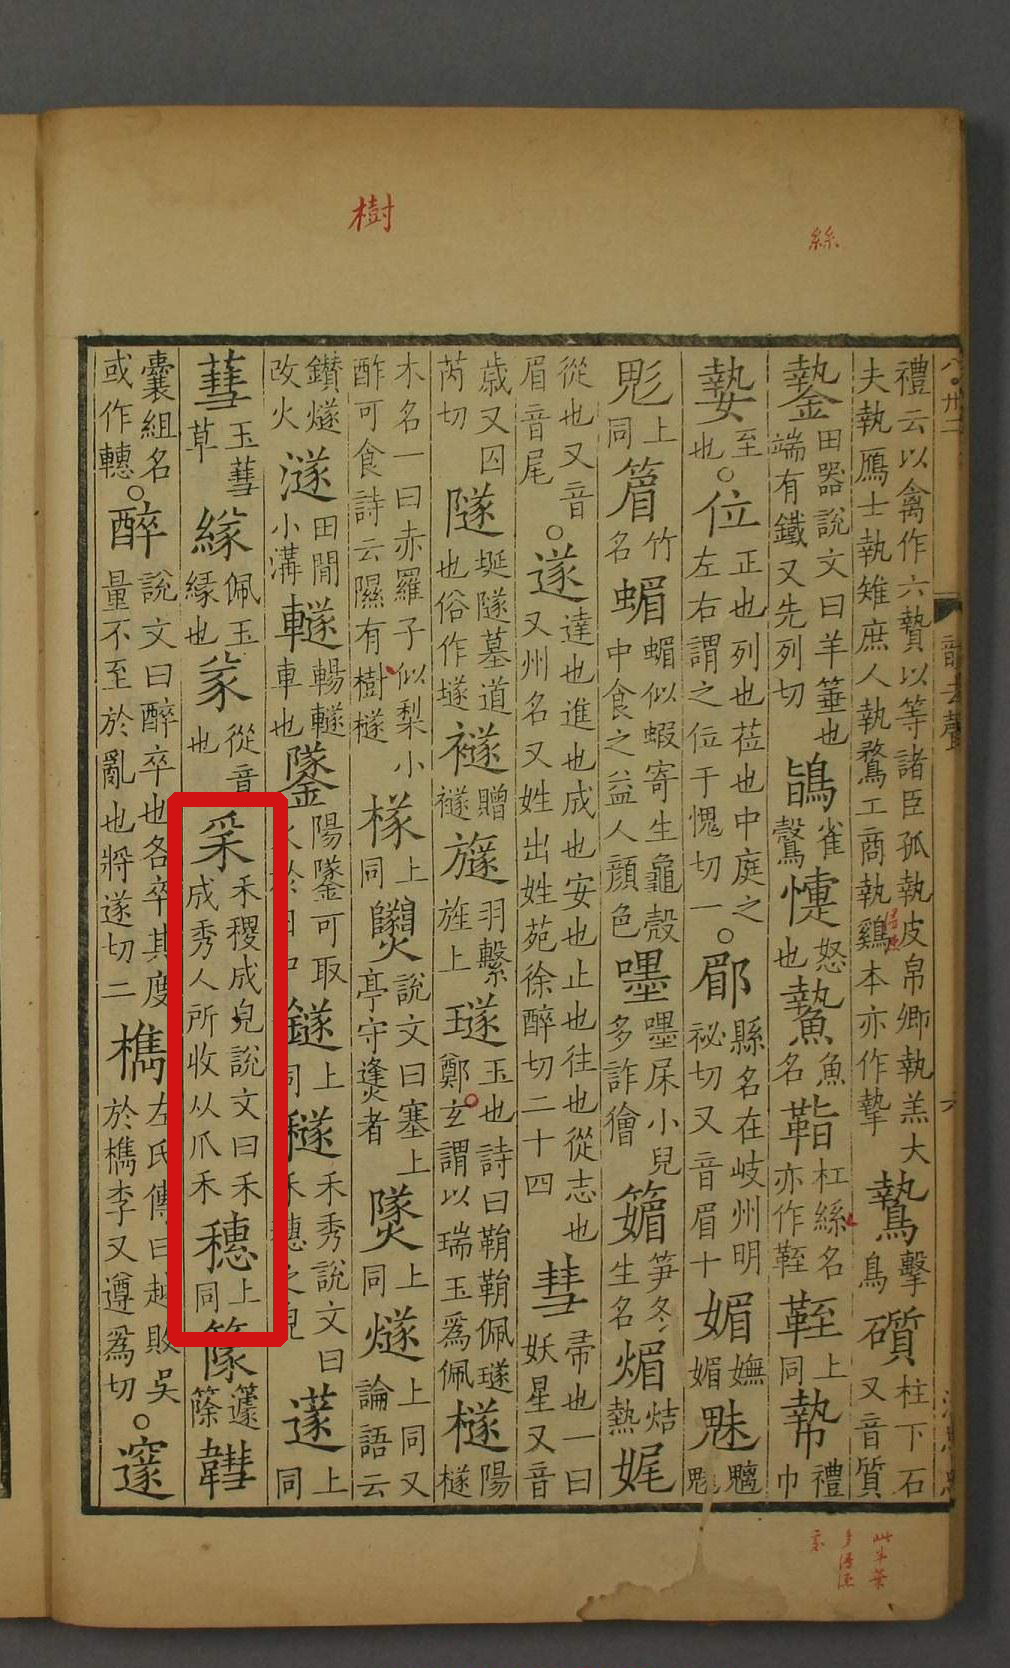 禮云以禽作六贄以等諸臣孤執皮帛卿執羔大夫執鴈士執雉庶人執鶩工商執雞本亦作摯鷙擊鳥礩柱下石又音質
田器說文曰羊箠也端有鐵又先列切雀鷇懥怒也魚名杠絲名亦作上同禮巾
至也○位正也列也莅也中庭之左右謂之位于愧切一○郿縣名在岐州明祕切又音眉十媚嫵媚魅魑魅
鬽上同篃竹名蝞蝞似蝦寄生龜殼中食之益人顏色嚜嚜杘小兒多詐獪䉋笋冬生名煝焅熱娓
從也又音眉音尾○遂達也進也成也安也止也往也從志也又州名又姓出姓苑徐醉切二十四彗帚也一曰妖星又音
歲又囚芮切隧埏隧墓道也俗作墜襚贈襚旞羽繫旌上璲玉也詩曰鞙鞙佩璲鄭玄謂以瑞玉爲佩檖陽檖
木名一曰赤羅子似梨小酢可食詩云隰有樹檖上同說文曰塞上亭守㷭者上同燧上同又論語云
鑽燧改火澻田間小溝車也陽鐆可取火於日中鐩上同穟禾秀說文曰禾穗之皃蓫上同
䔹玉䔹草佩玉緣也㒸從音也采禾稷成皃說文曰禾成秀人所收从爪禾穗上同籧篨韢
囊組名或作轊○醉說文曰醉卒也各卒其度量不至於亂也將遂切二檇左氏傳曰越敗吳於檇李又遵爲切○邃
樹
絲
此半葉